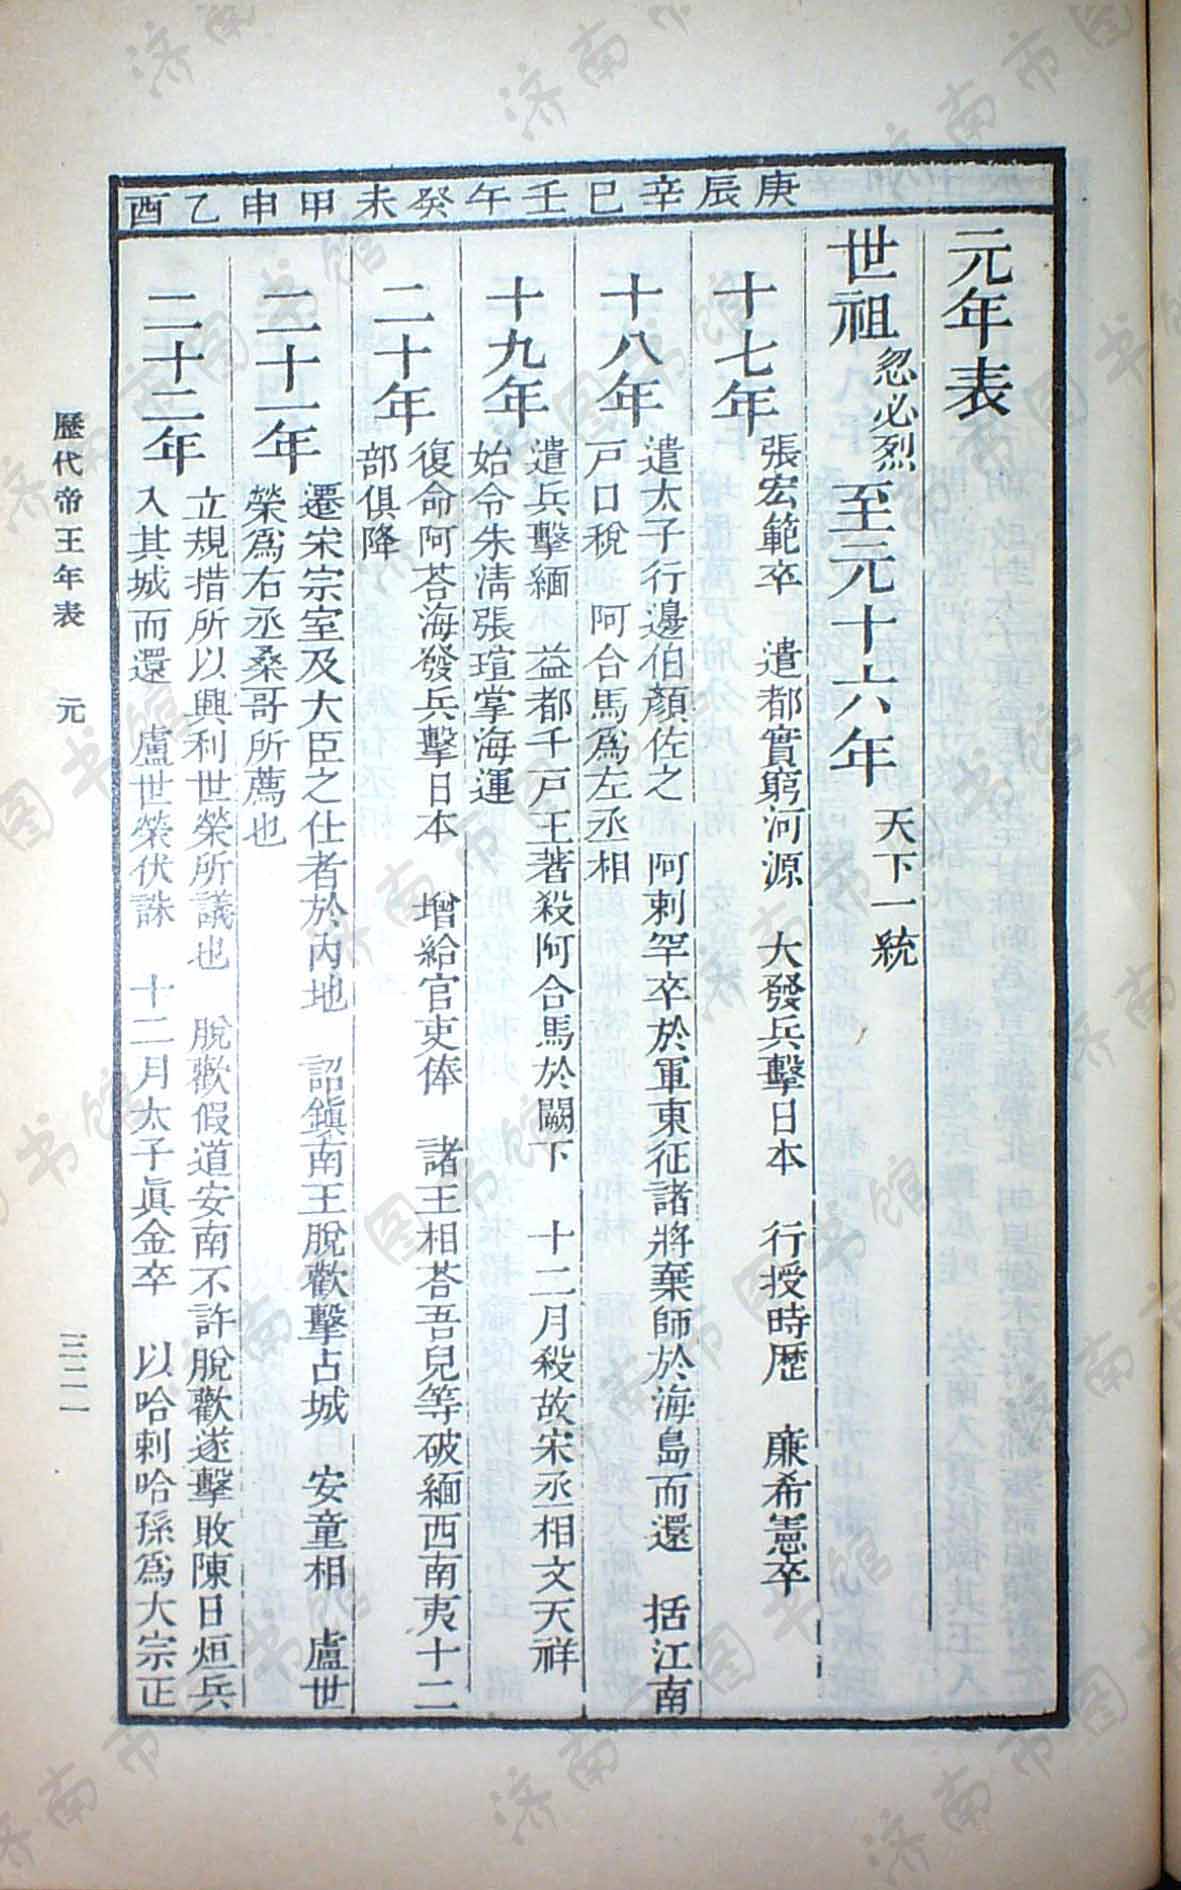 庚辰 辛巳 壬午 癸未 甲申 乙酉
元年表
世祖忽必烈至元十六年 天下一統
十七年 張宏範卒 遣都實窮河源 大發兵擊日本 行授時歷 廉希憲卒
十八年 遣太子行邊伯顏佐之 阿剌罕卒於軍東征諸將棄師於海島而還 括江南
戶口稅 阿合馬爲左丞相
十九年 遣兵擊緬 益都千戶王著殺阿合馬於闕下 十二月殺故宋丞相文天祥
始令朱淸張瑄掌海運
二十年 復命阿荅海發兵擊日本 增給官吏俸 諸王相荅吾兒等破緬西南夷十二
部俱降
二十一年 遷宋宗室及大臣之仕者於內地 詔鎭南王脫歡擊占城 安童相 盧世
榮爲右丞桑哥所薦也
二十二年 立規措所以興利世榮所議也 脫歡假道安南不許脫歡遂擊敗陳日烜兵
入其城而還 盧世榮伏誅 十二月太子眞金卒 以哈剌哈孫爲大宗正
歷代帝王年表 元
三二一
济南市图书馆